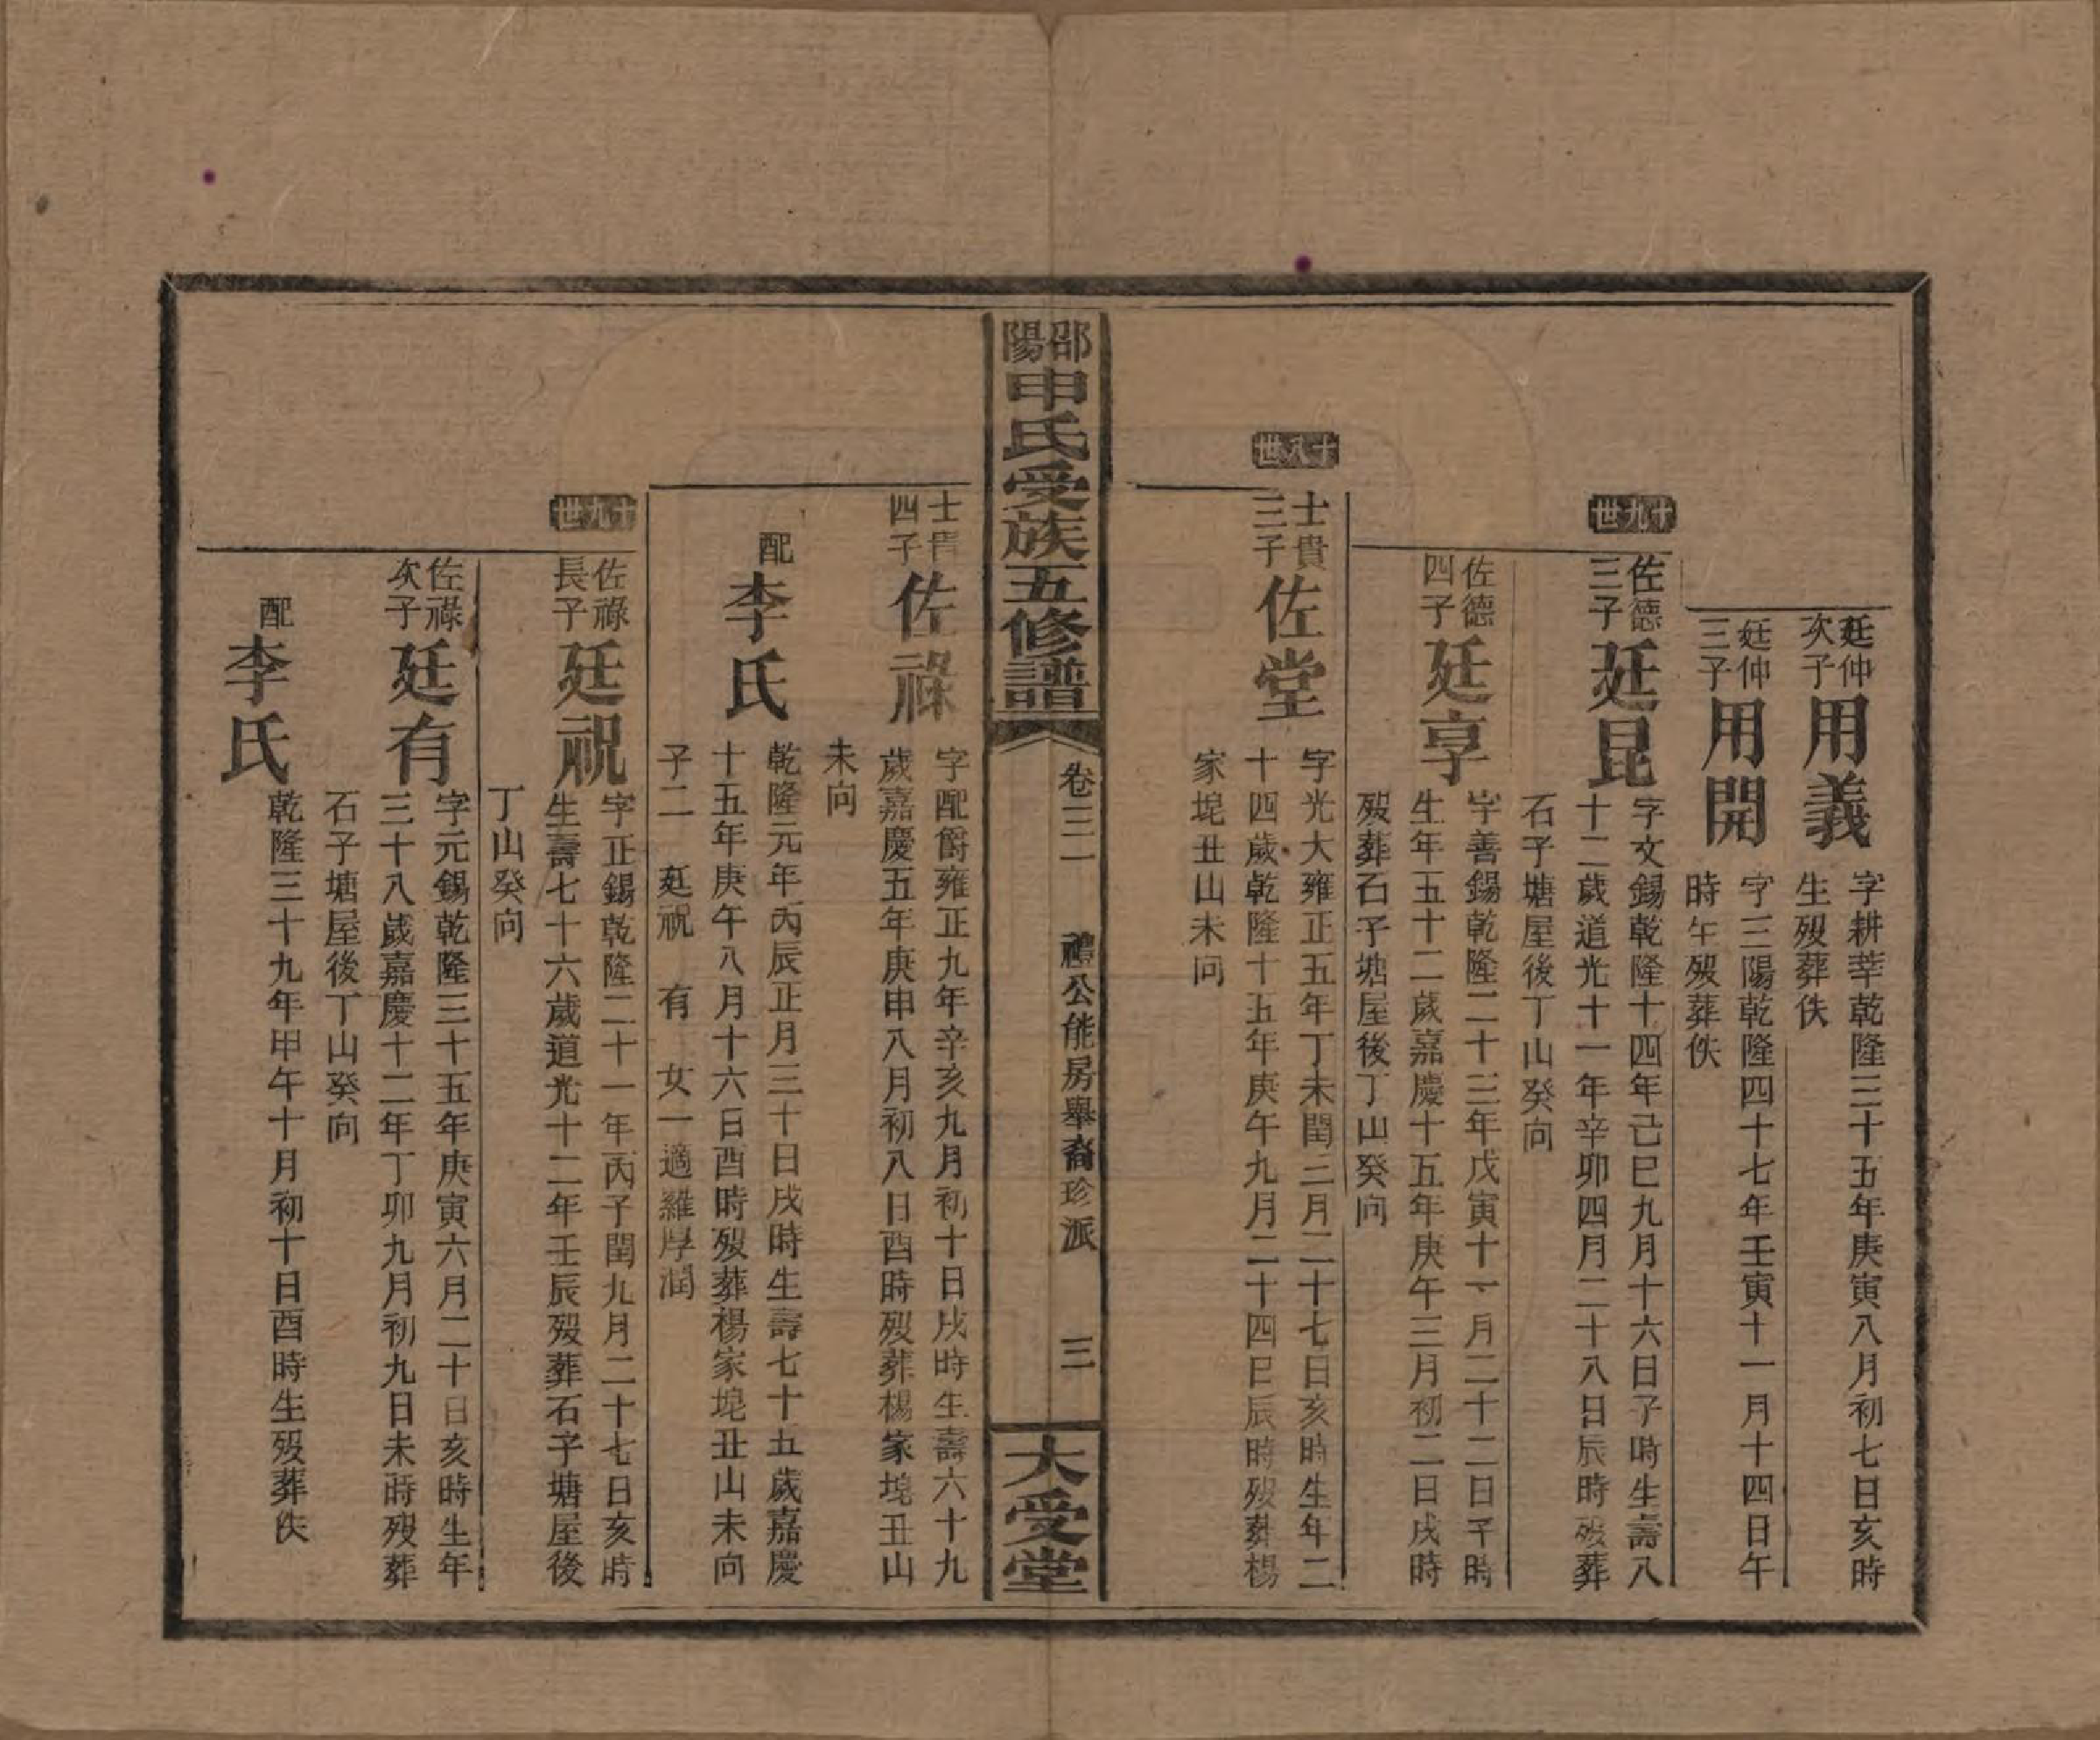 廷仲次子
用義
字耕莘乾隆三十五年庚寅八月初七日亥時
生殁葬佚
廷仲三子
用開
字三陽乾隆四十七年壬寅十一月十四日午
時午殁葬佚
十九世
佐德三子
廷昆
字文錫乾隆十四年己巳九月十六日子時生壽八
十二歲道光十一年辛卯四月二十八日辰時殁葬
石子塘屋後丁山癸向
佐德四子
廷享
字善錫乾隆二十三年戊寅十一月二十二日子時
生年五十二歲嘉慶十五年庚午三月初二日戌時
殁葬石子塘屋後丁山癸向
十八世
士貴三子
佐堂
字光大雍正五年丁未閏三月二十七日亥時生年二
十四歲乾隆十五年庚午九月二十四日辰時殁葬楊
家垸丑山未向
邵陽申氏受族五修譜
卷三一
禮公能房舉裔珍派
三
大受堂
士貴四子
佐祿
字配爵雍正九年辛亥九月初十日戌時生壽六十九
歲嘉慶五年庚申八月初八日酉時殁葬楊家垸丑山
未向
配
李氏
乾隆元年丙辰正月三十日戌時生壽七十五歲嘉慶
十五年庚午八月十六日酉時殁葬楊家垸丑山未向
子二 廷祝 有 女一適羅厚潤
十九世
佐祿長子
廷祝
字正錫乾隆二十一年丙子閏九月二十七日亥時
生壽七十六歲道光十二年壬辰殁葬石子塘屋後
丁山癸向
佐祿次子
廷有
字元錫乾隆三十五年庚寅六月二十日亥時生年
三十八歲嘉慶十二年丁卯九月初九日未時殁葬
石子塘屋後丁山癸向
配
李氏
乾隆三十九年甲午十月初十日酉時生殁葬佚